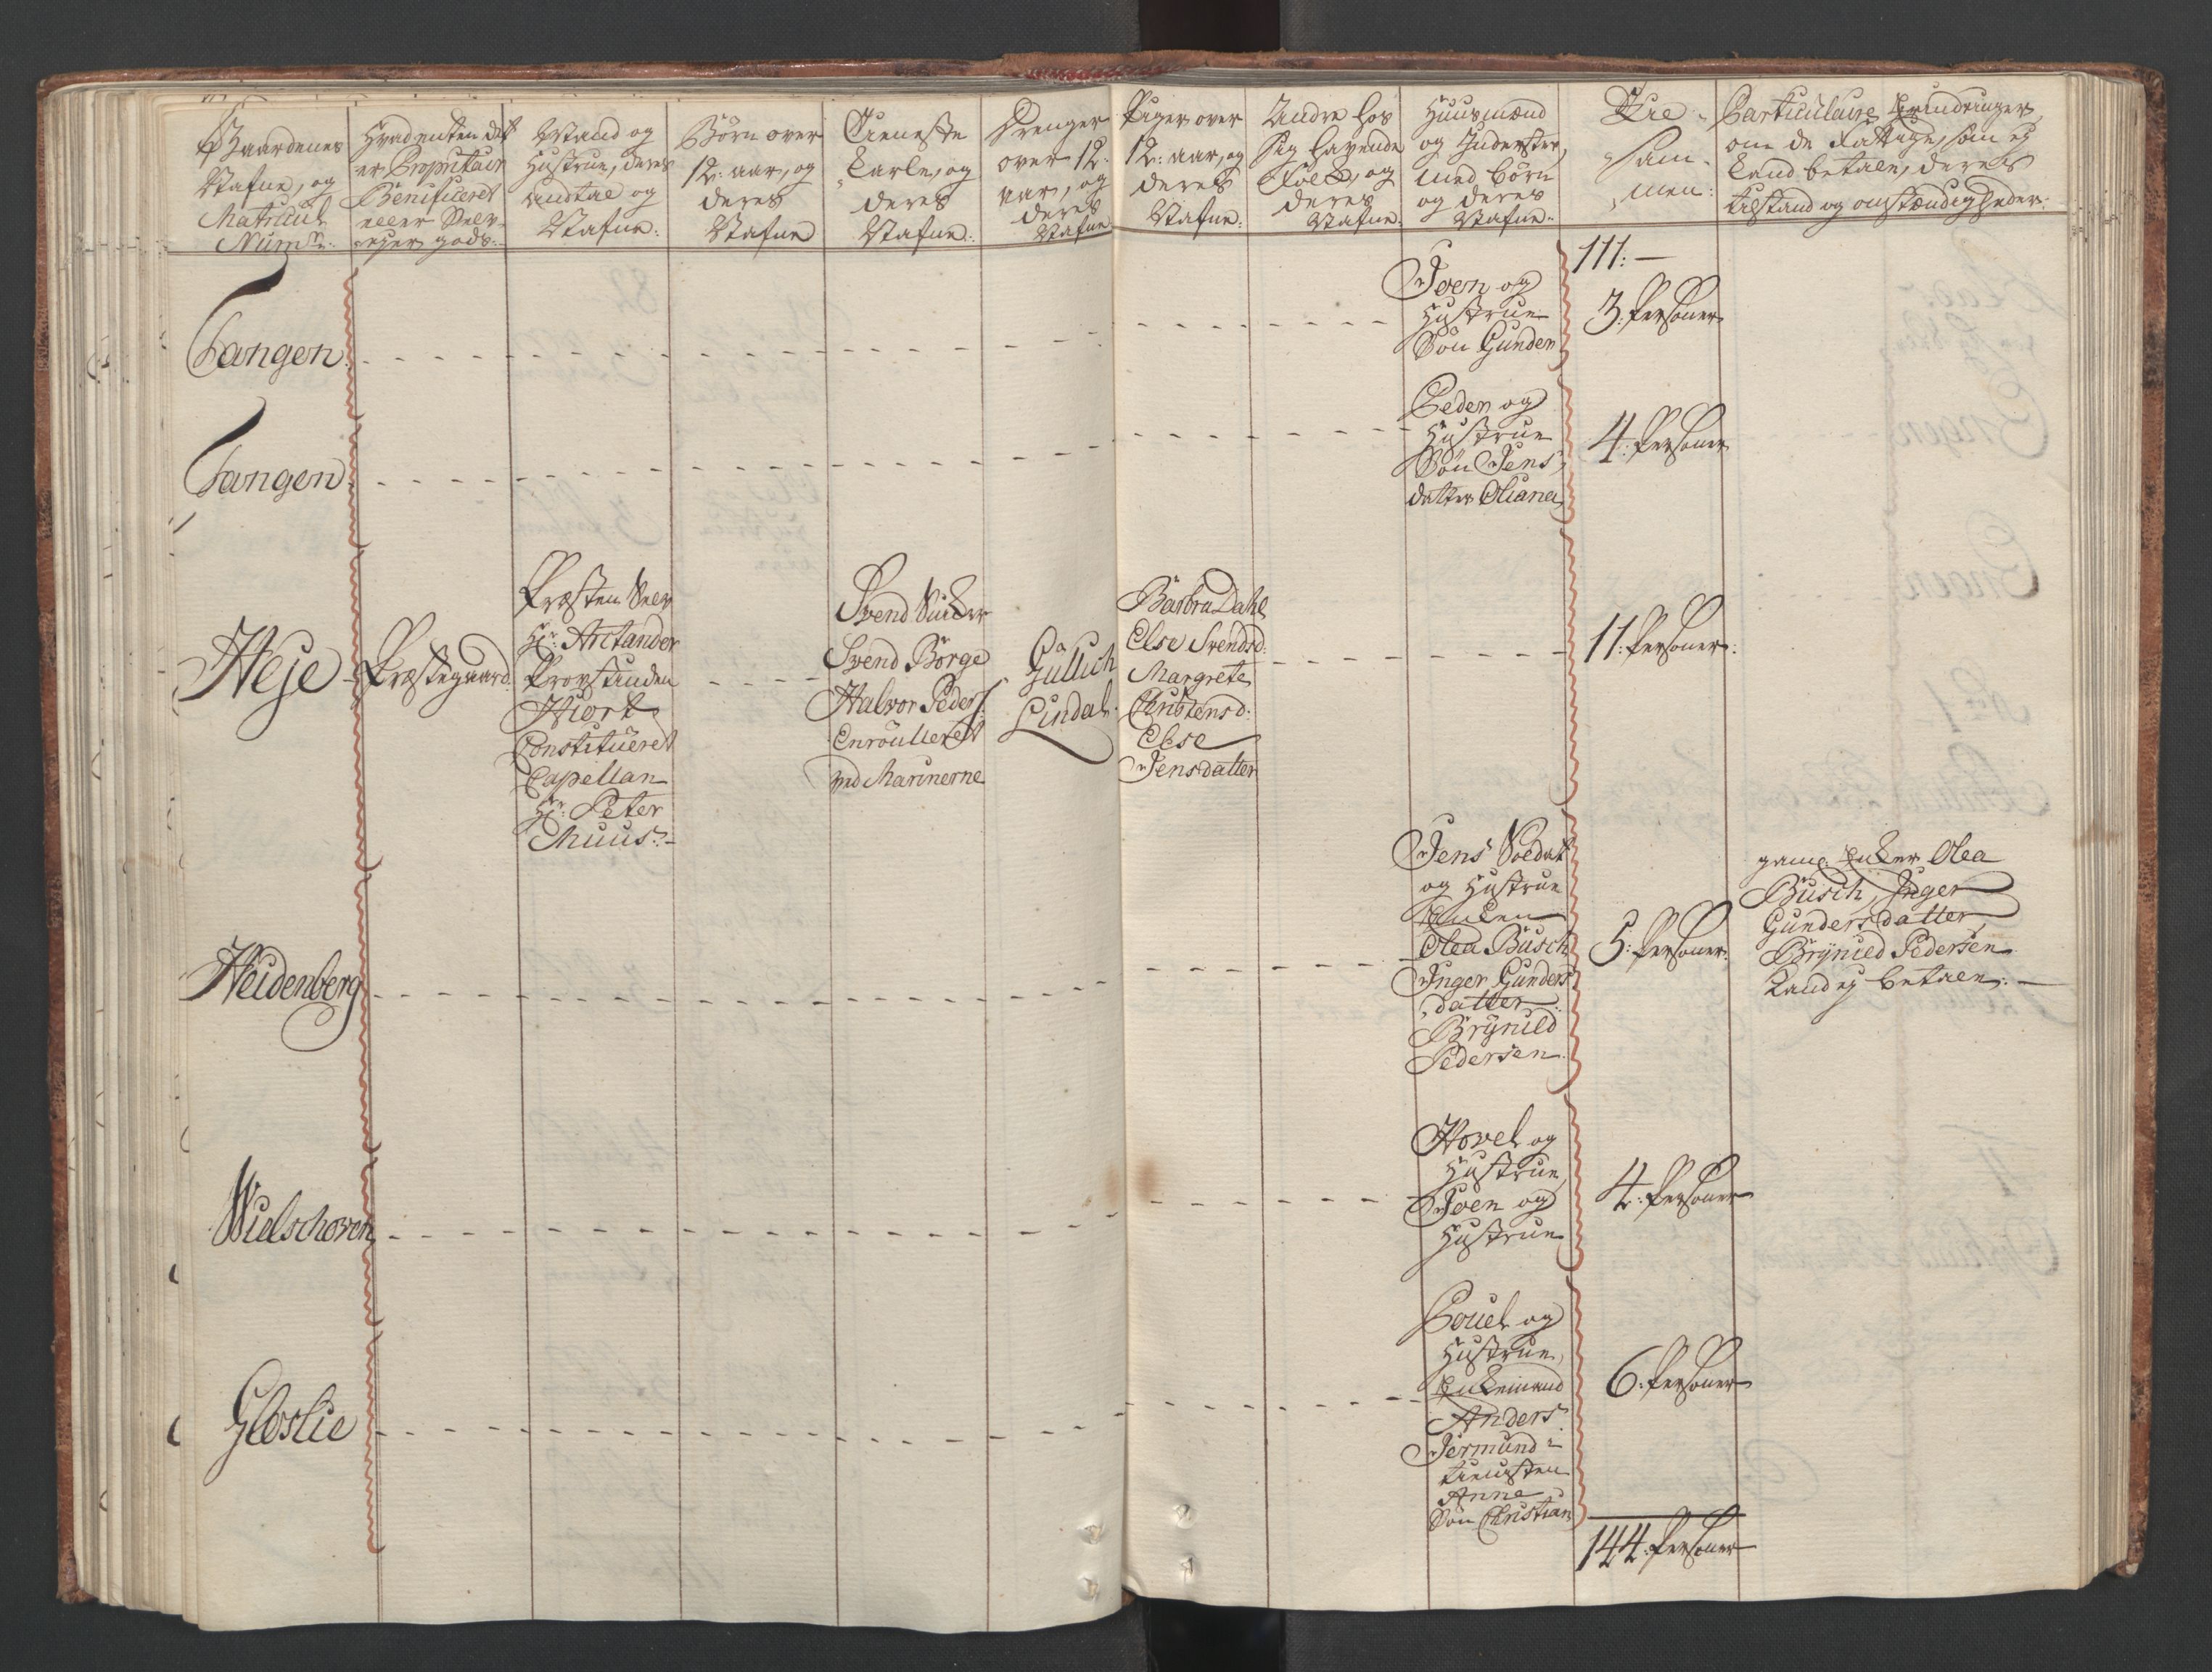 Gaardenes
Nafne, og
Matricul
Numr:
Hvad enten det
er Propritair
Benificeret
eller Selv-
ejer gods:
Mand og
Hustrue, deres
andtal og
Nafne:
Børn over
12: aar, og
deres
Nafne
Tieneste
Karle, og
deres
Nafne:
Drenger
over 12:
aar, og
deres
Nafne:
Piger over
12: aar, og
deres
Nafne:
Andre hos
sig havende
Folck, og
deres
Nafne:
Huusmænd
og Inderster,
med børn
og deres
Nafne:
Tilsam-
men:
Particulaire Erindringer
om de Fattige, som ej
kand betale, deres
tilstand og omstændigheder:
111:
Tangen
Joen og
Hustrue
Søn Gunder
3: Personer
Tangen
Peder og
Hustrue
Søn Jens,
datter Oliana
4: Personer
Heje
Præstegaard:
Præsten Selv
Hr: Arctander
Provstinden
Hiort
Constitueret
Capellan
Hr: Peter
Muus:
Svend
Svend Børge
Halvor Peders:
Enroulleret
ved Marinerne
Gullich
Lindal
Barbra Dahl
Else Svendsd:
Margrete
Christensd:
Else
Jensdatter
11: Personer:
Heidenberg
Jens Soldat
og Hustrue
Enken
Olea Busch
Inger Gunders
datter
Brynild
Pedersen
5: Personer:
gaml: Enker Olea
Busch, Inger
Gundersdatter,
Brynild Pedersen
kand ej betale:
Wielschoven
Hovel og
Hustrue,
Joen og
Hustrue
4: Personer
Gloslie
Pouel og
Hustrue,
Enkemand
Anders
Jermund i
tienesten
Anne
Søn Christian
6: Personer
144: Personer